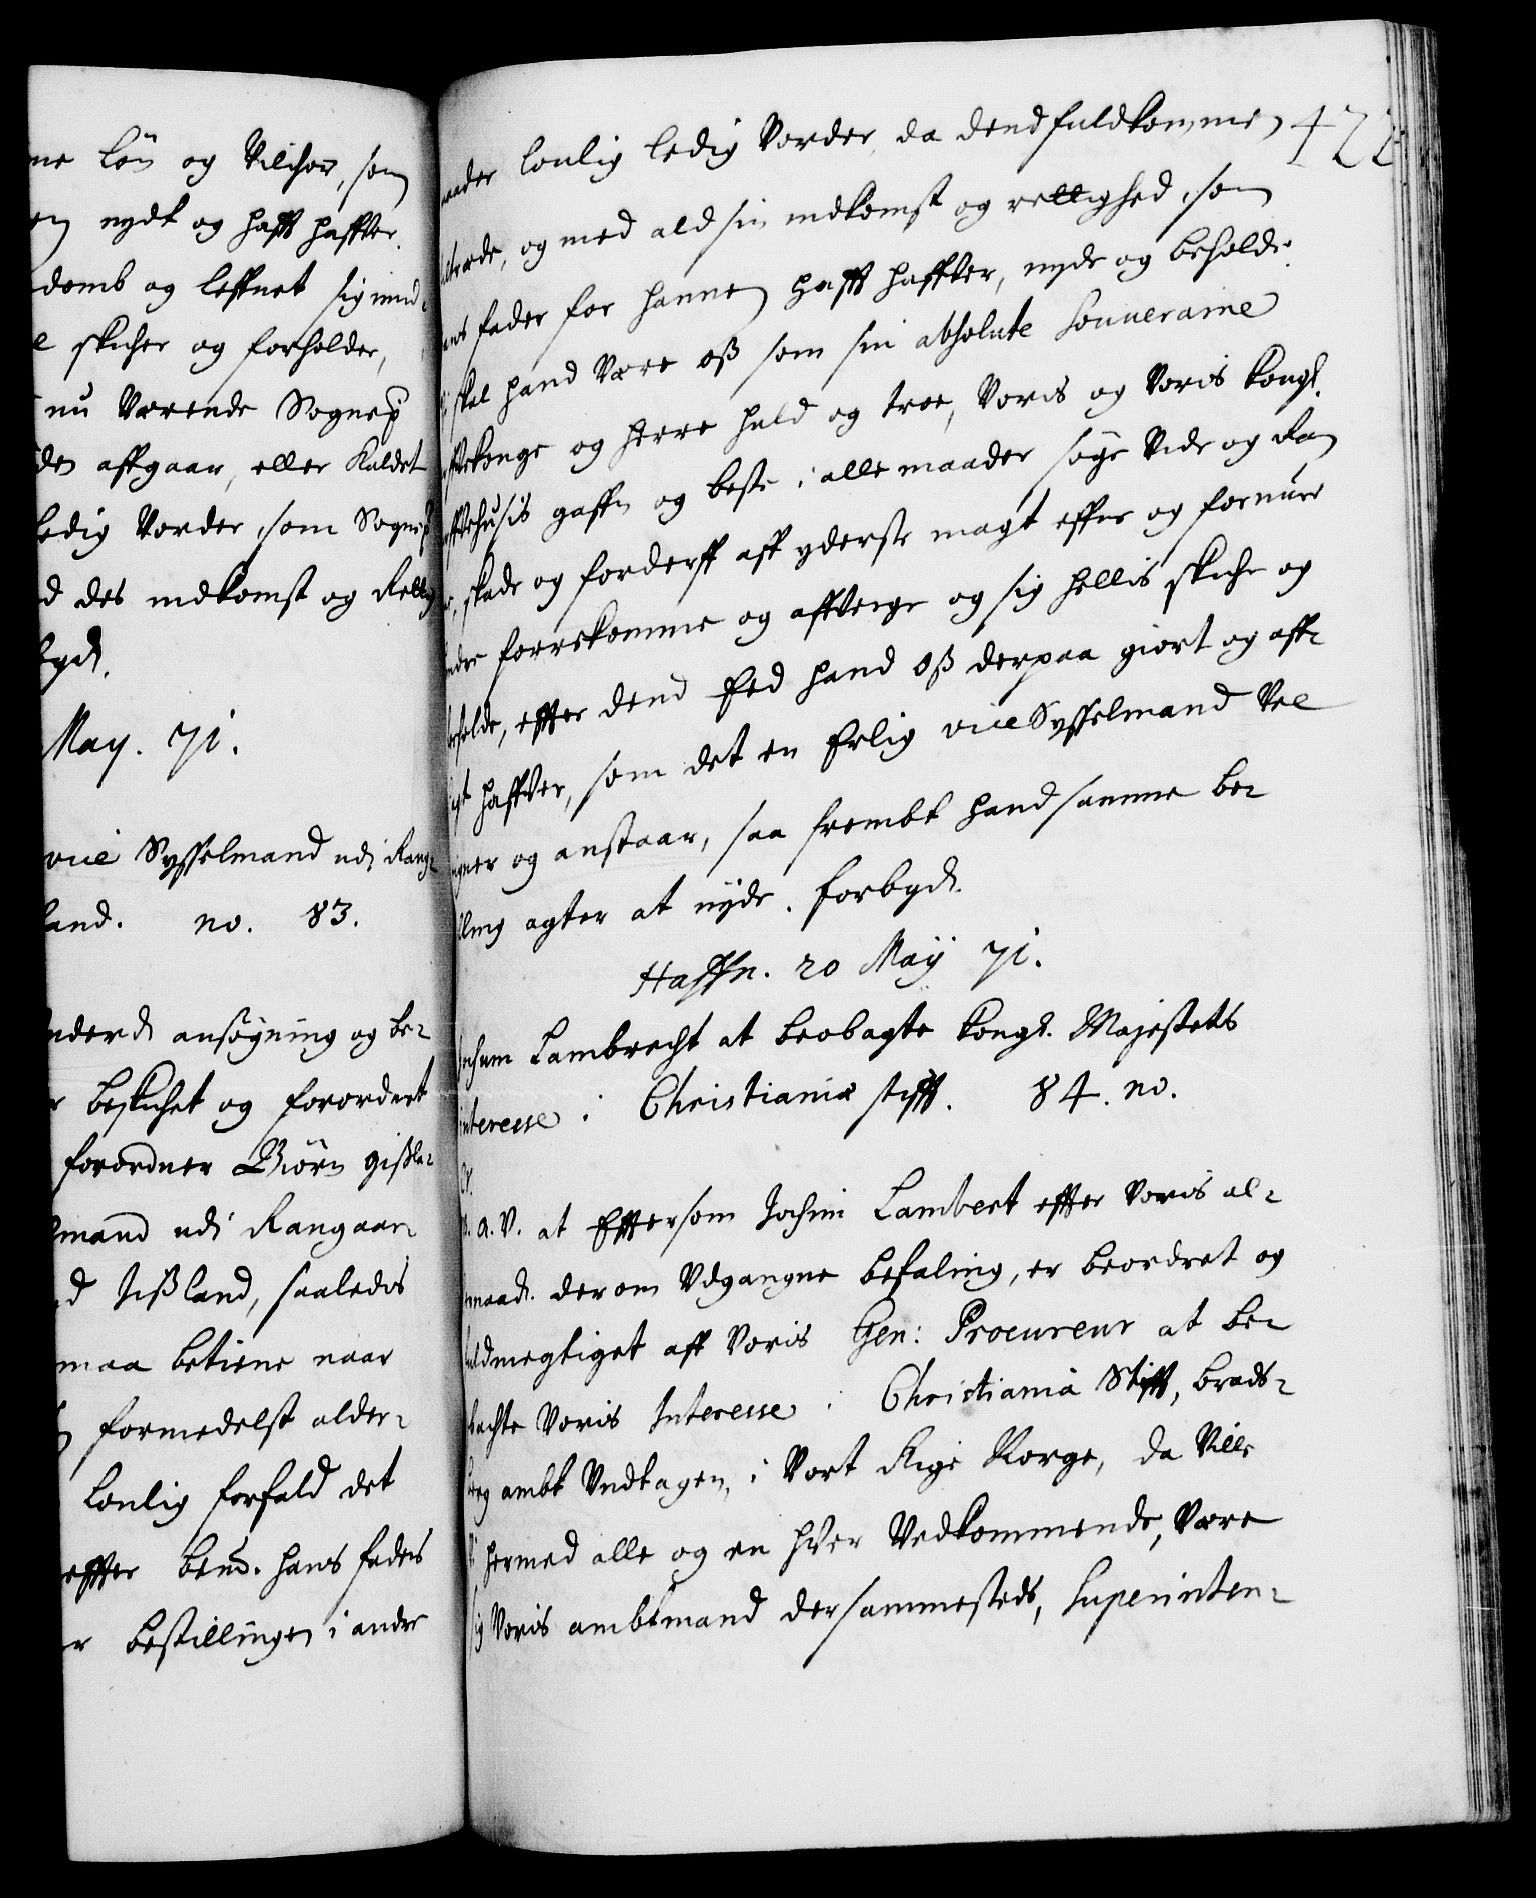 me Løn og Vilchor, som
en nydt og hafft haffver.
domb og leffnet sig und-
skicher og forholder,
nu Værende Sognep
den affgaar, eller Kaldet
ledig Vorder, som Sognep
d des indkomst og Rettig
bydd.
May. 71.
vice Sysselmand udi Rang-
land. no. 83.
underd ansøgning og be-
beskichet og forordnet
forordner Biørn gisle-
mand udi Rangaar-
d Jisland, saaledis
maa betiene naar
formedelst alder-
lovlig forfald det
effter bem. hans faders
bestillingen i andre
maader lovlig ledig Vorder, da dend fuldkommen 422
tiltræde, og med ald sin indkomst og rettighed, som
hans fader for hannem hafft haffver, nyde og beholde.
skal hand Være oß som sin absolute Souveraine
Arffvekonge og herre huld og troe, Voris og Voris kongl.
Arffvehusis gaffn og beste i alle maader søge Vide og Ram
, skade og forderff aff yderste magt effne og formue
hindre forrekomme og affverge og sig hellis skiche og
forholde, effter dend Eed hand oß derpaa giort og aff-
lagt haffver, som det en Erlig vice Sysselmand Vel
egner og anstaar, saa frembt hand samme be-
stilling agter at nyde. forbydd.
Haffn. 20 Maÿ 71.
Jochum Lambrecht at beobagte kongl. Majestetts
interesse i Christiania stifft. 84. no.
G. A. V. at Efftersom Jochim Lambert effter Voris al-
ernaad. derom Udgangne befaling, er beordret og
fuldmegtiget aff Voris Gen: Procureur at be-
obachte Voris Interesse i Christiania Stifft, brads-
berg ambt Undtagen, i Vort Rige Norge, da Ville
Vi hermed alle og en hver Vedkommende, Være
sig Voris ambtmand dersammesteds, Superinten-